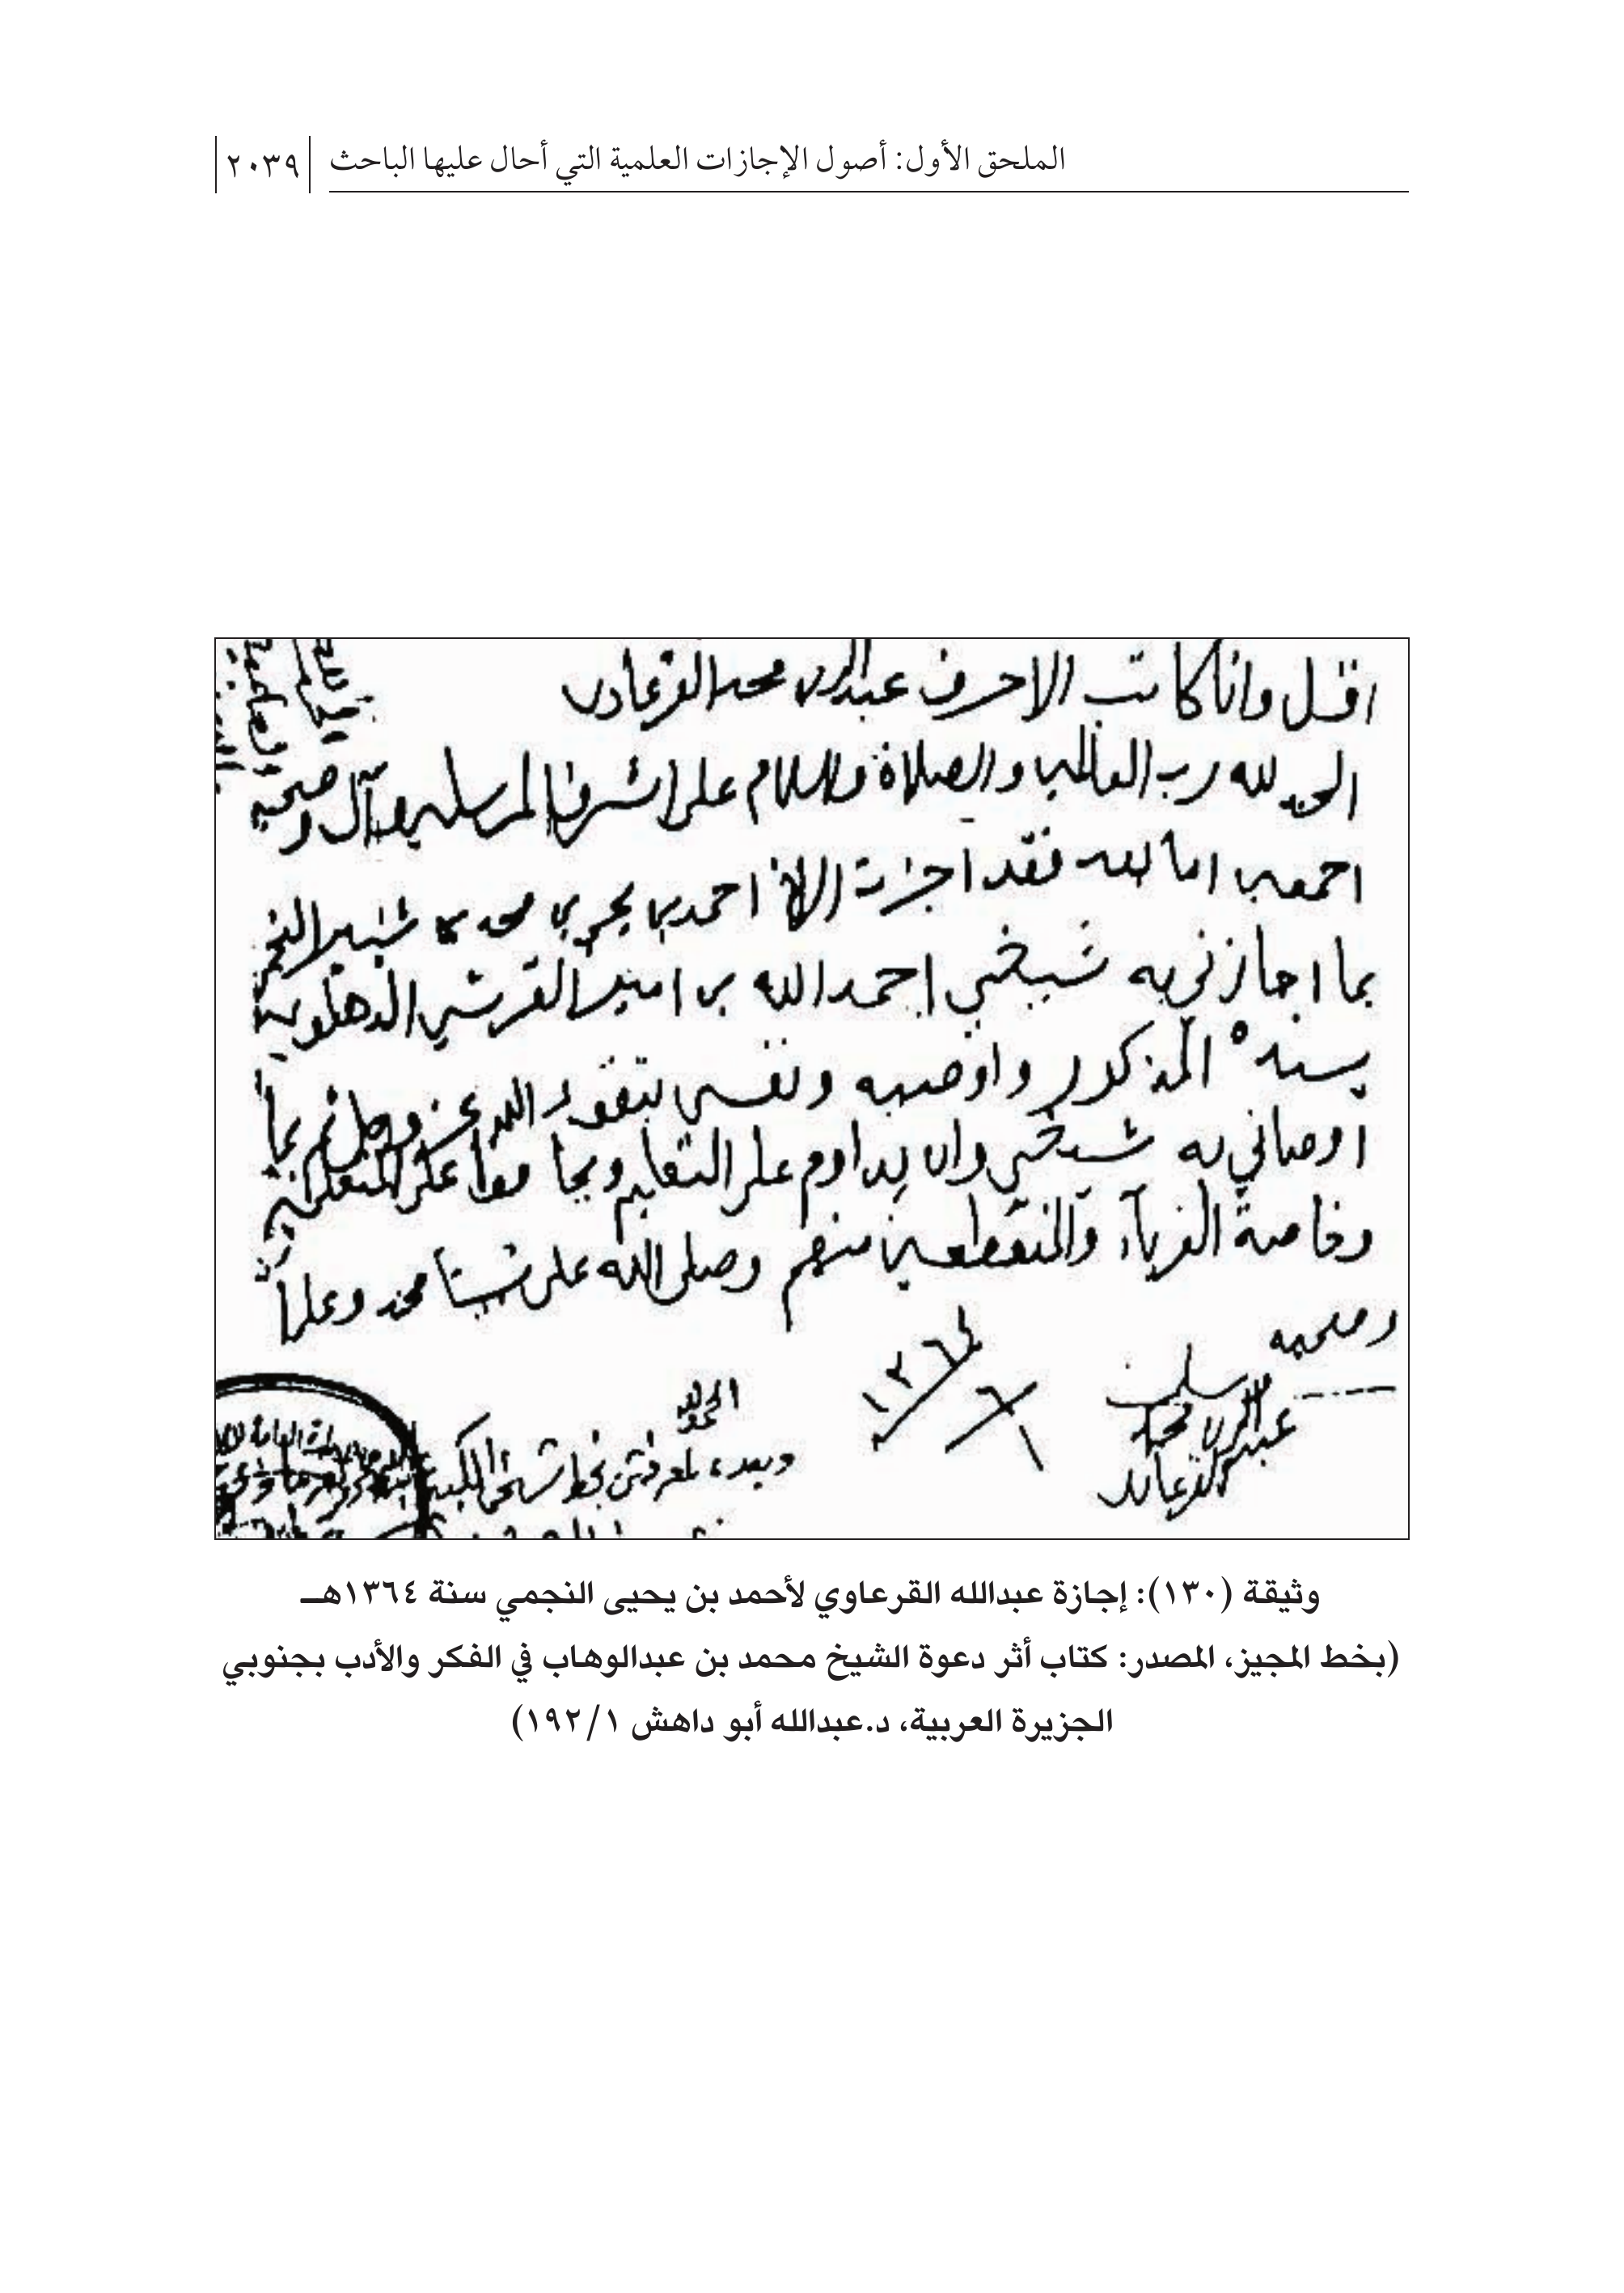 الملحق الأول: أصول الإجازات العلمية التي أحال عليها الباحث ٢٠٣٩
اقل وانا كاتب الاحرف عبدالله بن محمد القرعاوي
الحمد لله رب العالمين والصلاة والسلام على اشرف المرسلين وآل وصحبه
اجمعين اما بعد فقد اجزت الاخ احمد بن يحيى بن محمد بن شبير النجمي
بما اجازني به شيخي احمد الله بن امير القرشي الدهلوي
بسنده المذكور واوصيه ونفسي بتقوى الله عز وجل ثم بما
اوصاني به شيخي وان يداوم على التعليم
وخاصة الغرباء والمنقطعين منهم وصلى الله على نبينا محمد وعلى
وصحبه
عبدالله بن محمد القرعاوي
١٣٦٤
٦
١
الحمد لله
وبعد، بخط شيخي
وثيقة (١٣٠): إجازة عبدالله القرعاوي لأحمد بن يحيى النجمي سنة ١٣٦٤هـ
(بخط المجيز، المصدر: كتاب أثر دعوة الشيخ محمد بن عبدالوهاب في الفكر والأدب بجنوبي
الجزيرة العربية، د.عبدالله أبو داهش ١/ ١٩٢)